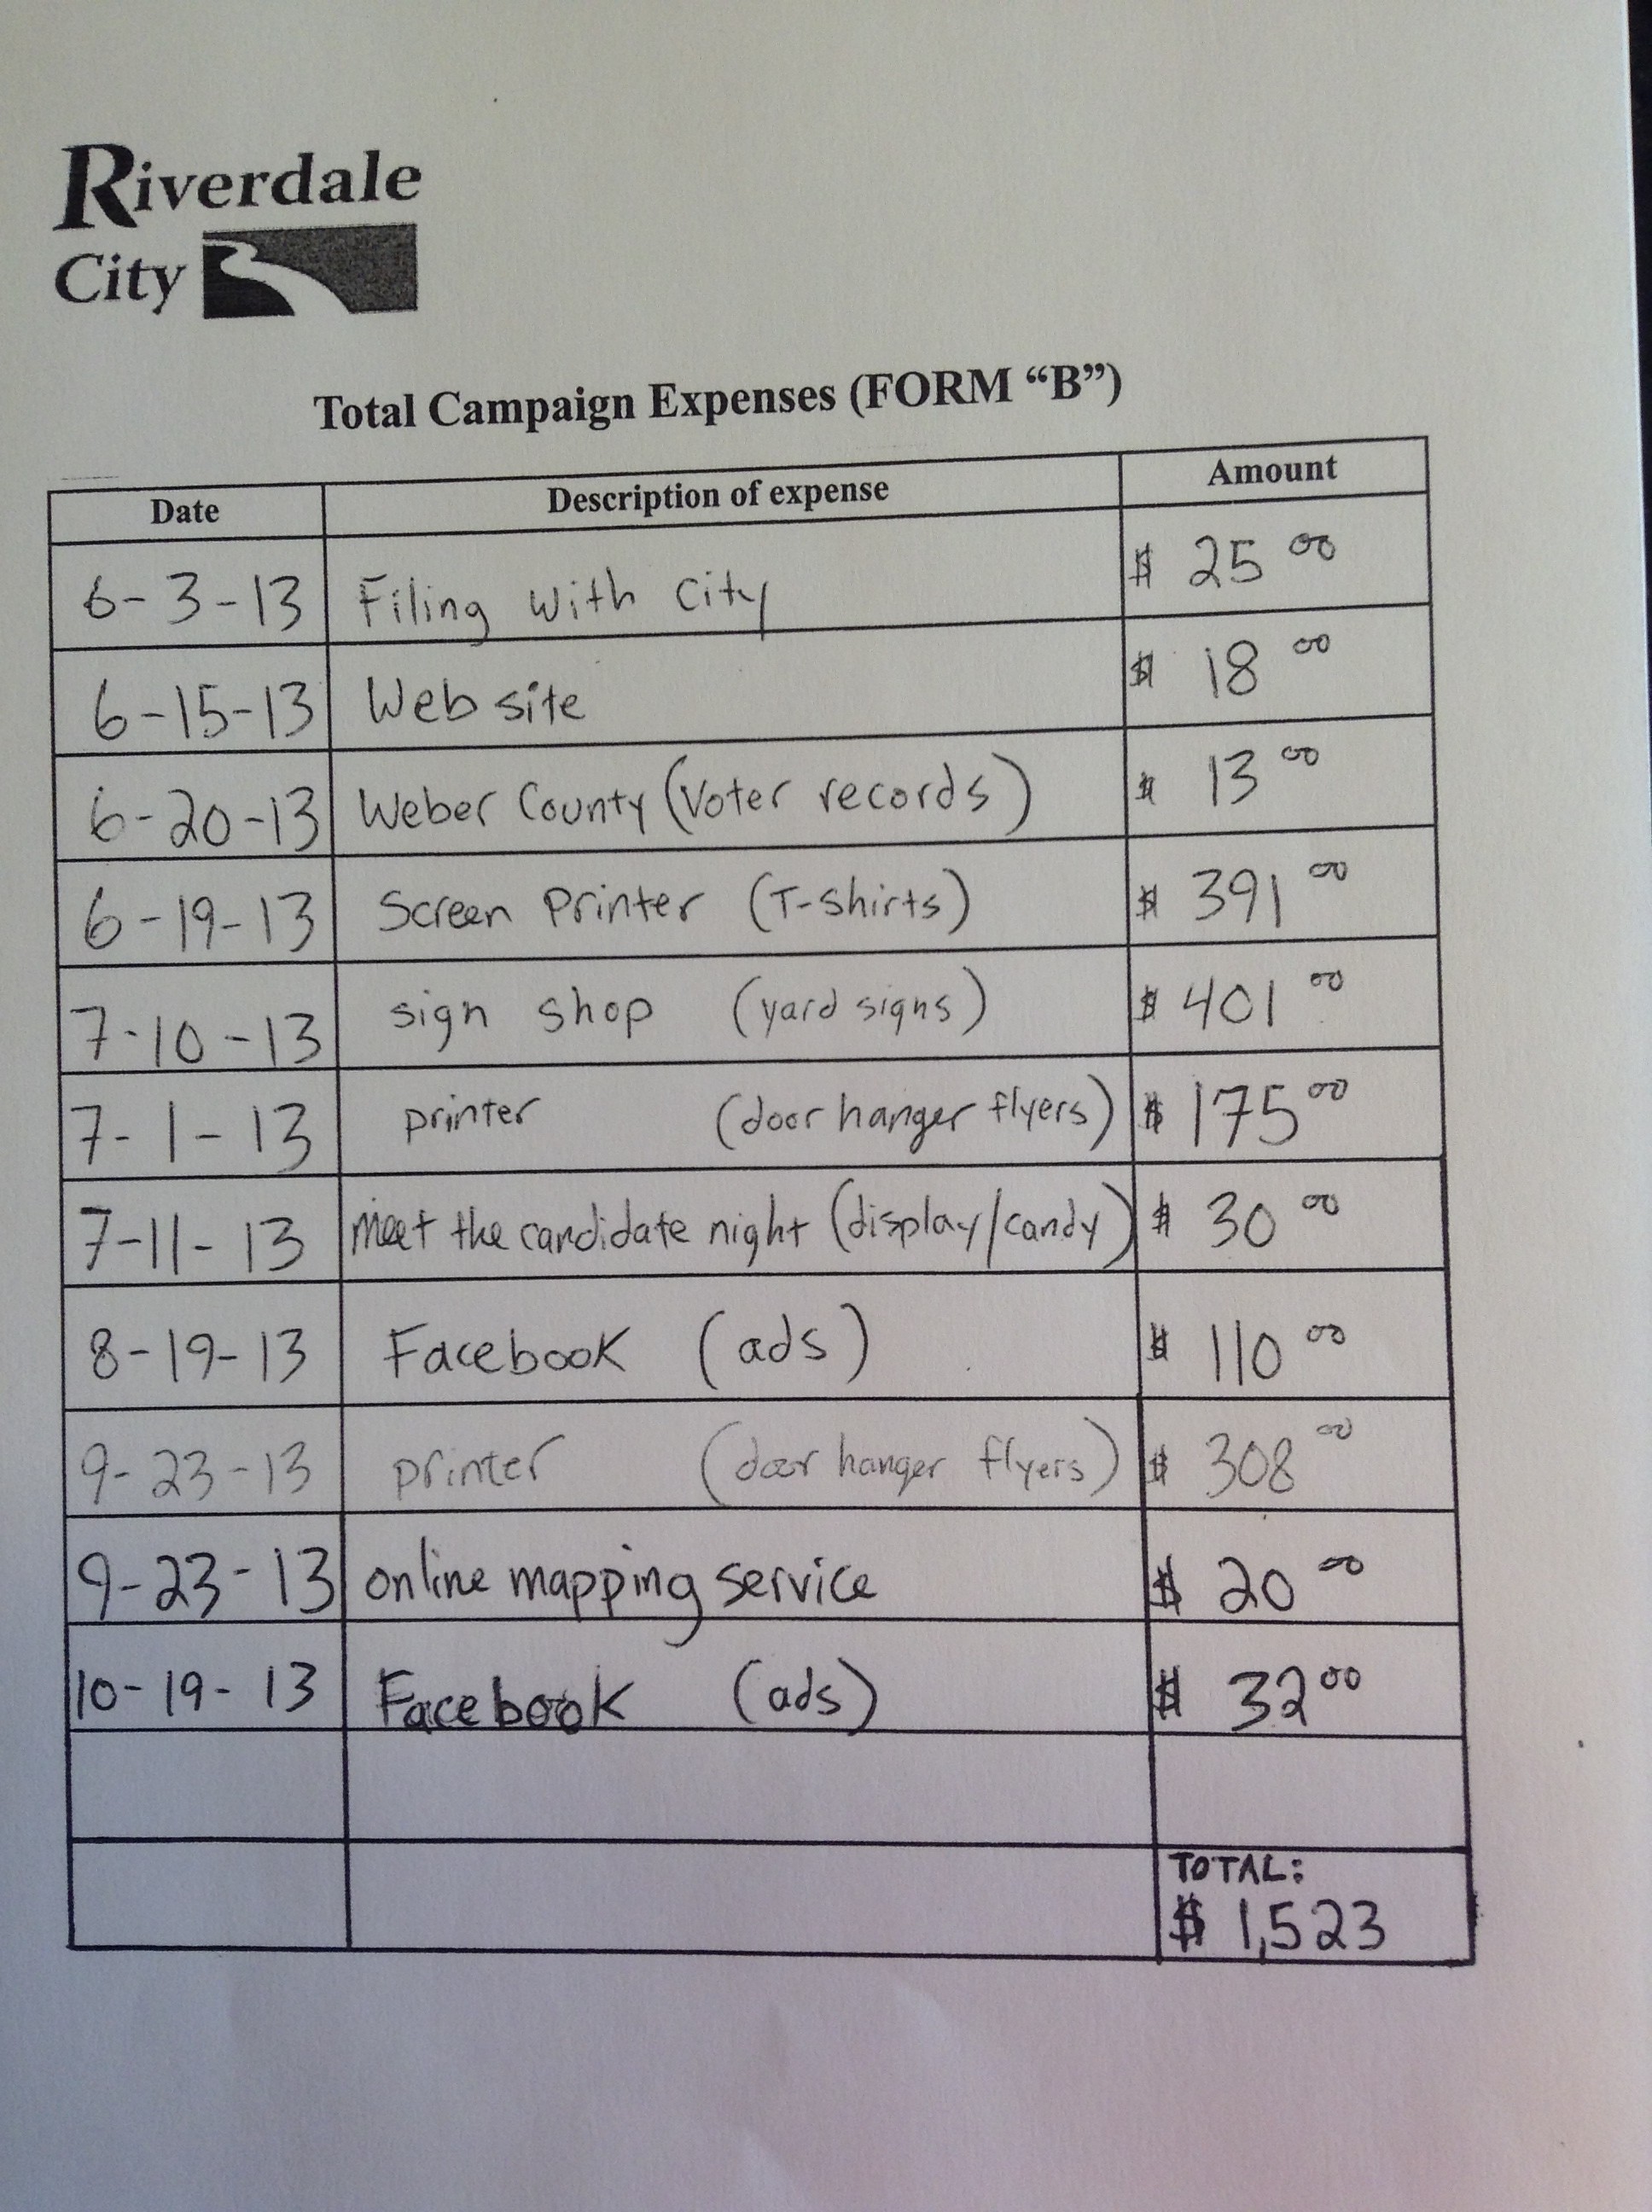 Riverdale
City
Total Campaign Expenses (FORM “B”)
Date Description of expense Amount
6-3-13 Filing with City $ 25 00
6-15-13 Web site $ 18 00
6-20-13 Weber County (Voter records) $ 13 00
6-19-13 Screen Printer (T-Shirts) $ 391 00
7-10-13 sign shop (yard signs) $ 401 00
7-1-13 printer (door hanger flyers) $ 175 00
7-11-13 meet the candidate night (display/candy) $ 30 00
8-19-13 Facebook (ads) $ 110 00
9-23-13 printer (door hanger flyers) $ 308 00
9-23-13 online mapping service $ 20 00
10-19-13 Facebook (ads) $ 32 00
TOTAL:
$ 1,523